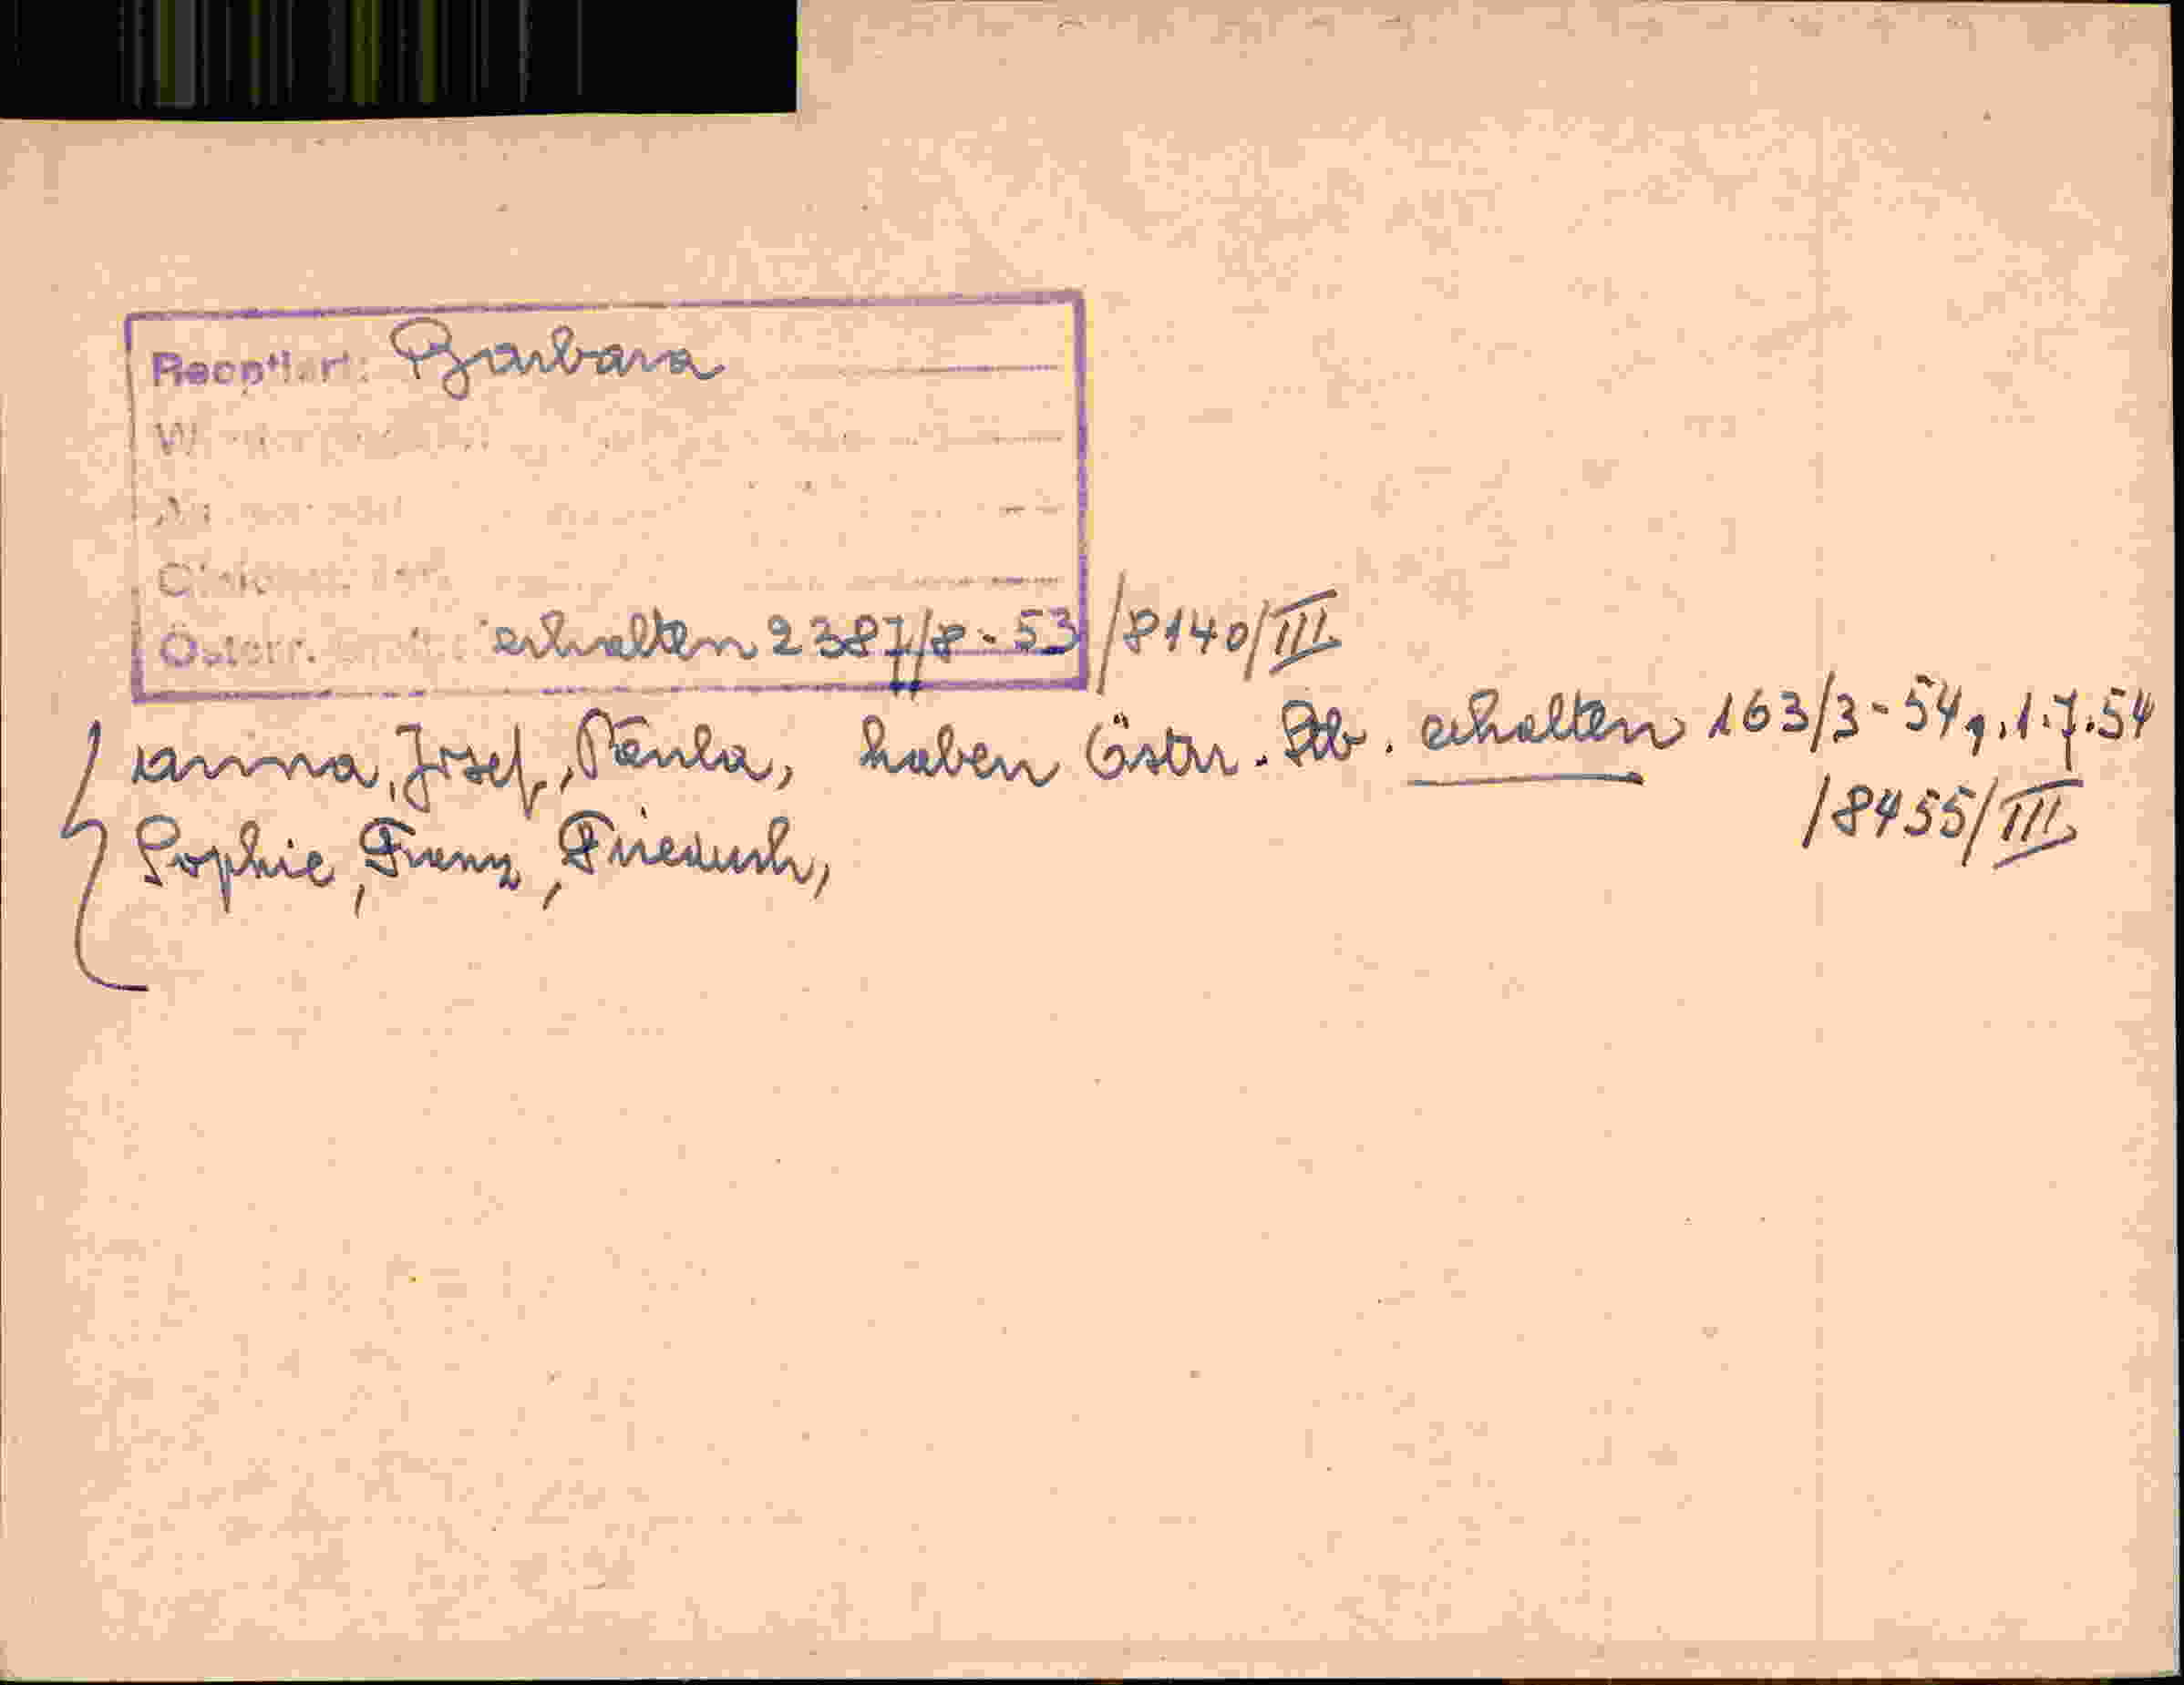 Reoptiert: Barbara
Österr. erhalten 2387/8-53/8140/III
Anna, Josef, Paula, haben Östr. Stb. erhalten 163/3-54, 1.7.54
/8455/III
Sophie, Franz, Friedrich,